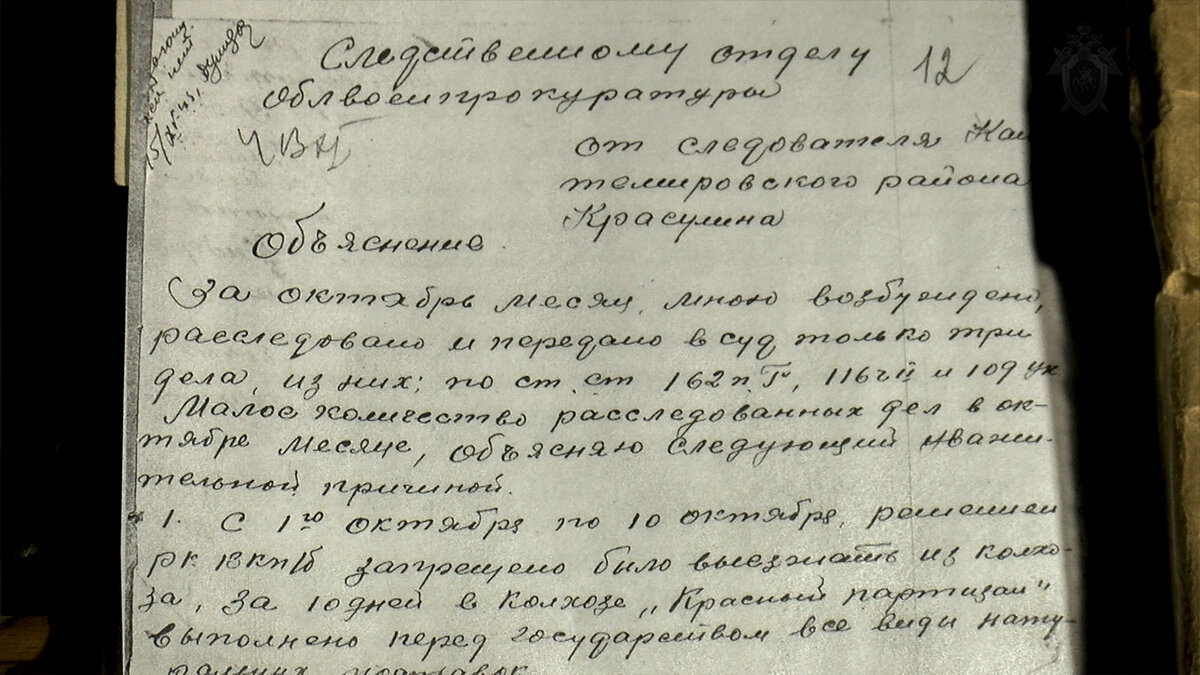 15/XI 43,
12
Следственному отделу
Облвоенпрокуратуры
от следователя Кан
темировского района
Красулина
Объяснение.
За октябрь месяц, мною возбуждено,
расследовано и передано в суд только три
дела, из них: по ст. ст 162 п. Г", 116 ч II и 109 ук
Малое количество расследованных дел в ок-
тябре месяце, объясняю следующий уважи-
тельной причиной.
1. С 1го октября по 10 октября, решением
рк ВКП/б запрещено было выезжать из колхо-
за, за 10 дней в колхозе „Красный партизан"
выполнено перед государством все виды нату-
ральных поставок